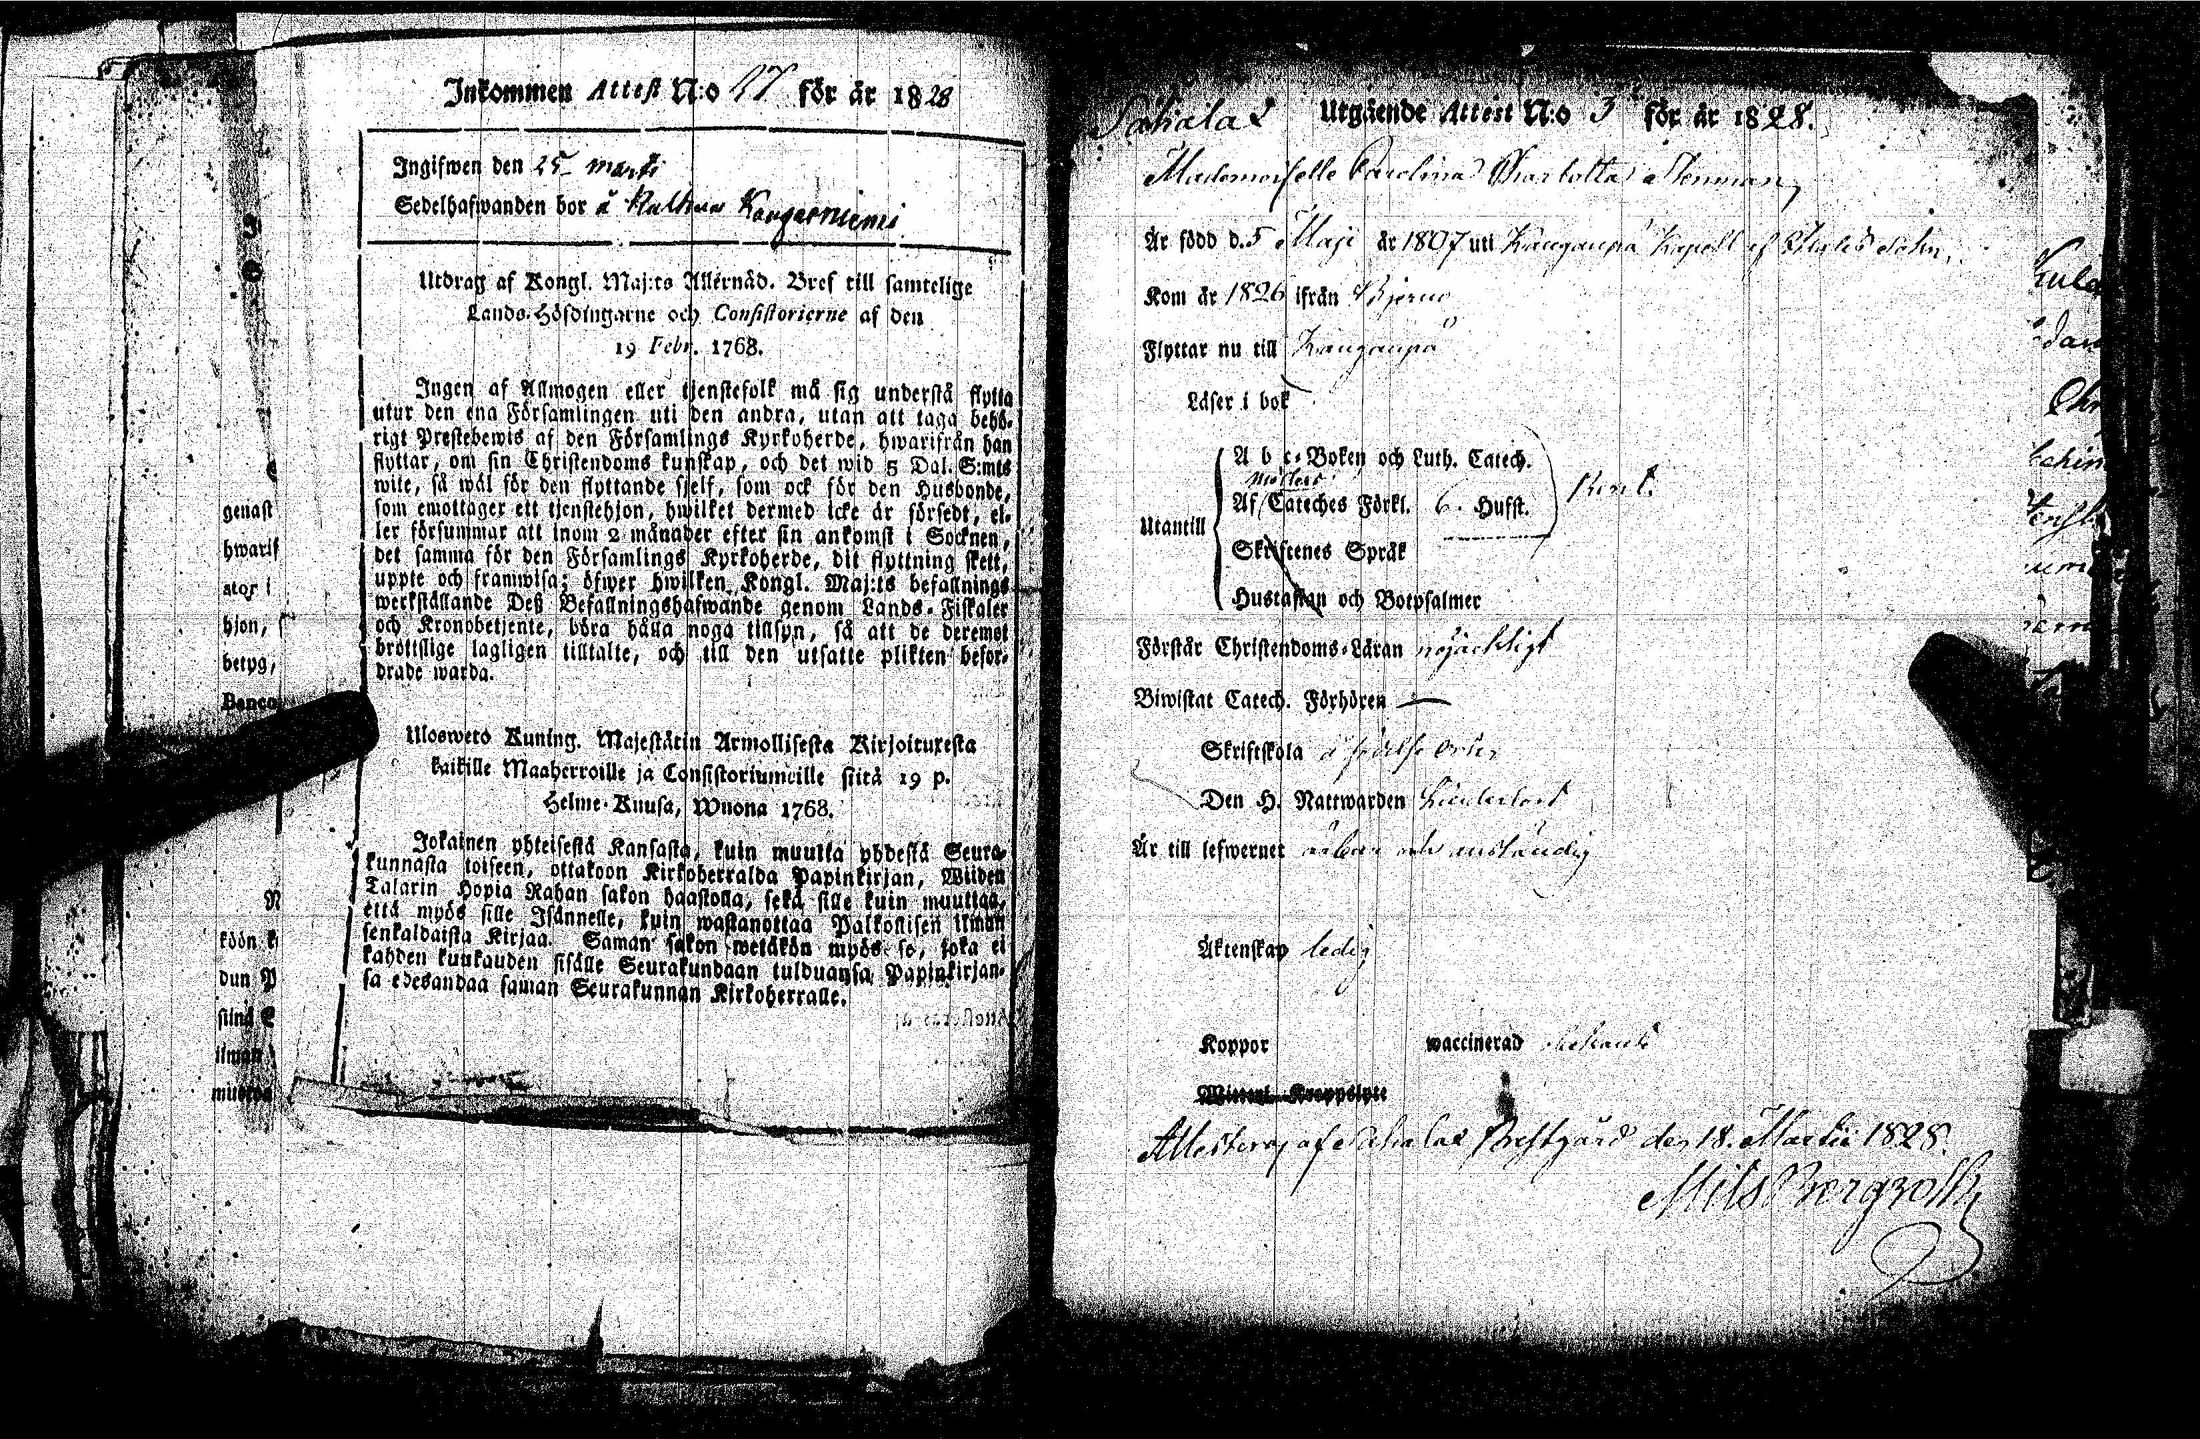 Inkommen Attest N:o 27 för år 1828
Ingifwen den 25 Marti
Sedelhafwanden bor å Kangasniemi
Utdrag af Kongl. Maj:ts Allernåd. Bref till samtelige
Lands-Höfdingarne och Consistorierne af den
19 Febr. 1768.
Ingen af Allmogen eller tjenstefolk må sig understå flytta
utur den ena Församlingen uti den andra, utan att taga behö-
rigt Prestebewis af den Församlings Kyrkoherde, hwarifrån han
flyttar, om sin Christendoms kunskap, och det wid 5 Dal. S:mts
wite, så wäl för den flyttande sjelf, som ock för den Husbonde,
som emottager ett tjenstehjon, hwilket dermed icke är försedt, el-
ler försummar att inom 2 månader efter sin ankomst i Socknen,
det samma för den Församlings Kyrkoherde, dit flyttning skett,
uppte och framwisa; öfwer hwilken Kongl. Maj:ts befallnings
werkställande Deß Befallningshafwande genom Lands-Fiskaler
och Kronobetjente, böra hålla noga tillsyn, så att de deremot
brottslige lagligen tilltalte, och till den utsatte plikten befor-
drade warda.
Uloswetö Kuning. Majestätin Armollisesta Kirjoituxesta
kaikille Maaherroille ja Consistoriumeille siitä 19 p.
Helme-Kuusa, Wuona 1768.
Jokainen yhteisestä Kansasta, kuin muutta yhdestä Seura-
kunnasta toiseen, ottakoon Kirkoherralda Papinkirjan, Wiiden
Talarin Hopia Rahan sakon haastolla, sekä sille kuin muuttaa,
että myös sille Isännelle, kuin wastanottaa Palkollisen ilman
senkaldaista Kirjaa. Saman sakon wetäkön myös se, joka ei
kahden kuukauden sisälle Seurakundaan tulduansa Papinkirjan-
sa edesandaa saman Seurakunnan Kirkoherralle.
genast
hwarif
stor i
hjon,
betyg,
Banco
köön k
dun P
stinä E
ilman
Sahalax Utgående Attest N:o 3 för år 1828.
Mademoiselle Carolina Charlotta Stenman,
Är född d. 5 Maji år 1807 uti Kangaunpä Kapell af
Kom år 1826 ifrån Bjerno
Flyttar nu till Kangaunpä
Läser i bok
A b c-Boken och Luth. Catech.
Möllers
Af Cateches Förkl. 6. Hufst.
Rent.
Utantill
Skriftenes Språk
Hustaflan och Botpsalmer
Förstår Christendoms-Läran nöjachtigt
Biwistat Catech. Förhören —
Skriftskola å
Den H. Nattwarden
Är till lefwernet ärbar och anständig
Äktenskap ledig
Koppor waccinerad
Attesteras af Sahalax Prestgård den 18. Martii 1828.
Nils Bergroth